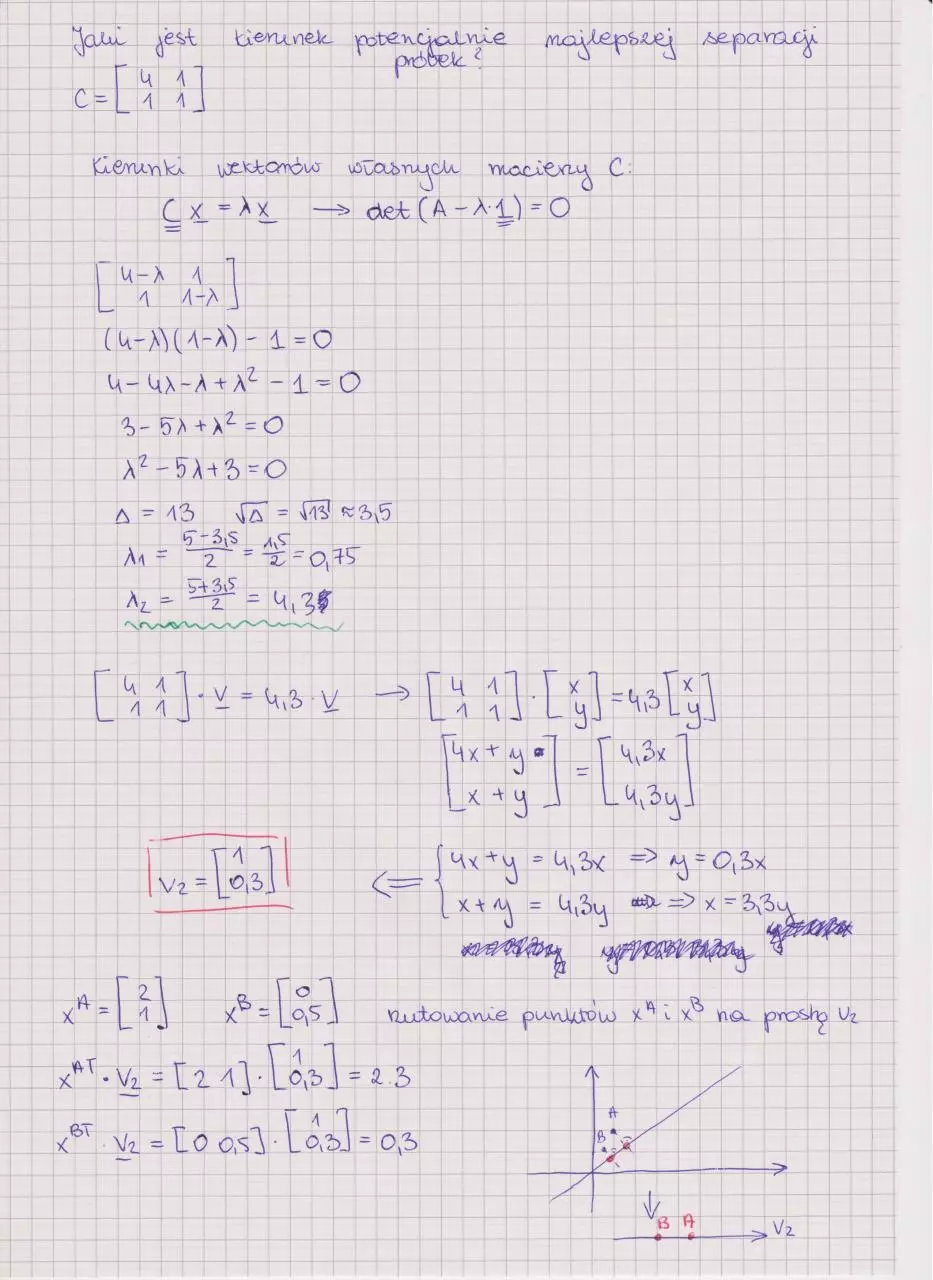 Jaki jest kierunek potencjalnie najlepszej separacji
próbek?
C = [4 1; 1 1]
Kierunki wektorów własnych macierzy C:
C x = λ x → det (A - λ·1) = 0
[4-λ 1; 1 1-λ]
(4-λ)(1-λ) - 1 = 0
4 - 4λ - λ + λ² - 1 = 0
3 - 5λ + λ² = 0
λ² - 5λ + 3 = 0
Δ = 13 √Δ = √13 ≈ 3,5
λ1 = (5-3,5)/2 = 1,5/2 = 0,75
λ2 = (5+3,5)/2 = 4,3
[4 1; 1 1] · v = 4,3 · v → [4 1; 1 1] · [x; y] = 4,3 [x; y]
[4x + y; x + y] = [4,3x; 4,3y]
v2 = [1; 0,3] ⇐ { 4x+y = 4,3x ⇒ y = 0,3x
x+y = 4,3y ⇒ x = 3,3y
x^A = [2; 1] x^B = [0; 0,5] rzutowanie punktów x^A i x^B na prostą v2
x^AT · v2 = [2 1] · [1; 0,3] = 2.3
x^BT · v2 = [0 0,5] · [1; 0,3] = 0,3
A
B
B A v2